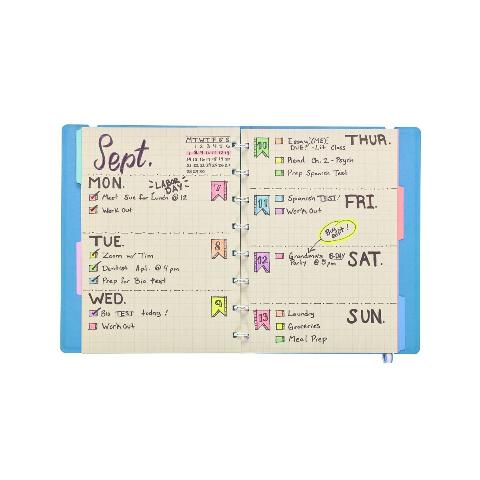 Sept.
M T W T F S S
MON.
LABOR
DAY
7
Meet Sue for Lunch @ 12
Work Out
TUE.
8
Zoom w/ Tim
Dentist Apt. @ 4 pm
Prep for Bio test
WED.
9
Bio TEST today!
Work Out
THUR.
10
Essay (ME)
DUE! - Lit Class
Read Ch. 2 - Psych
Prep Spanish Test
FRI.
11
Spanish TEST!
Work Out
Buy Gift!
SAT.
12
Grandma's B-DAY
Party @ 5 pm
SUN.
13
Laundry
Groceries
Meal Prep